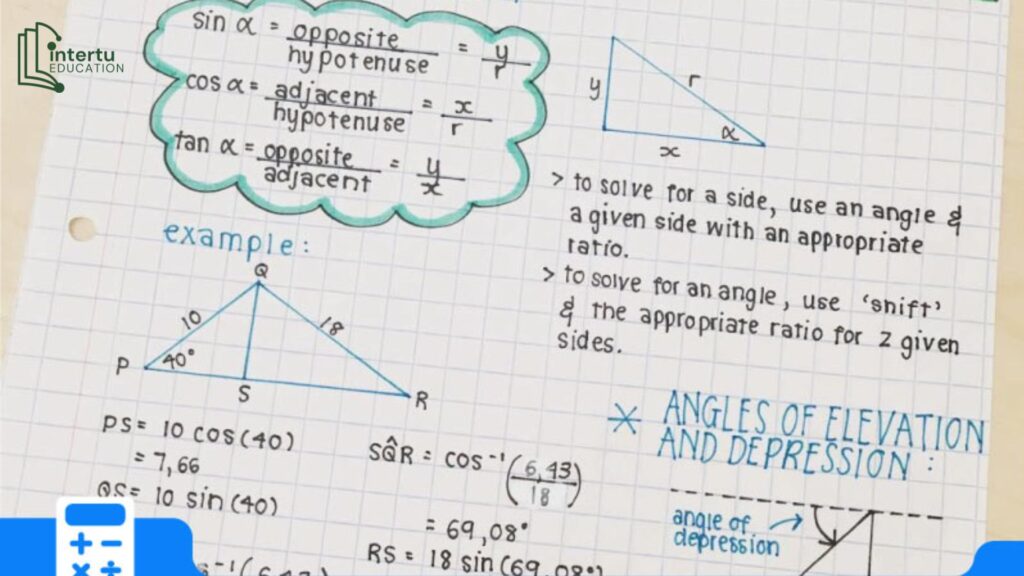 intertu
EDUCATION
sin α = opposite / hypotenuse = y / r
cos α = adjacent / hypotenuse = x / r
tan α = opposite / adjacent = y / x
y
r
α
x
> to solve for a side, use an angle &
a given side with an appropriate
ratio.
> to solve for an angle, use 'shift'
& the appropriate ratio for 2 given
sides.
example:
Q
10
18
P
40°
S
R
PS = 10 cos(40)
= 7,66
QS = 10 sin(40)
SQ̂R = cos⁻¹(6,43 / 18)
= 69,08°
RS = 18 sin(69,08°)
* ANGLES OF ELEVATION
AND DEPRESSION :
angle of
depression